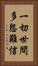 一切世間
多怨難信